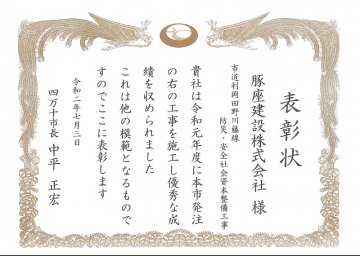 表彰状
豚座建設株式会社 様
市道利岡田野川藤線
防災・安全社会資本整備工事
貴社は令和元年度に本市発注
の右の工事を施工し優秀な成
績を収められました
これは他の模範となるもので
すのでここに表彰します
令和二年七月三日
四万十市長 中平 正宏